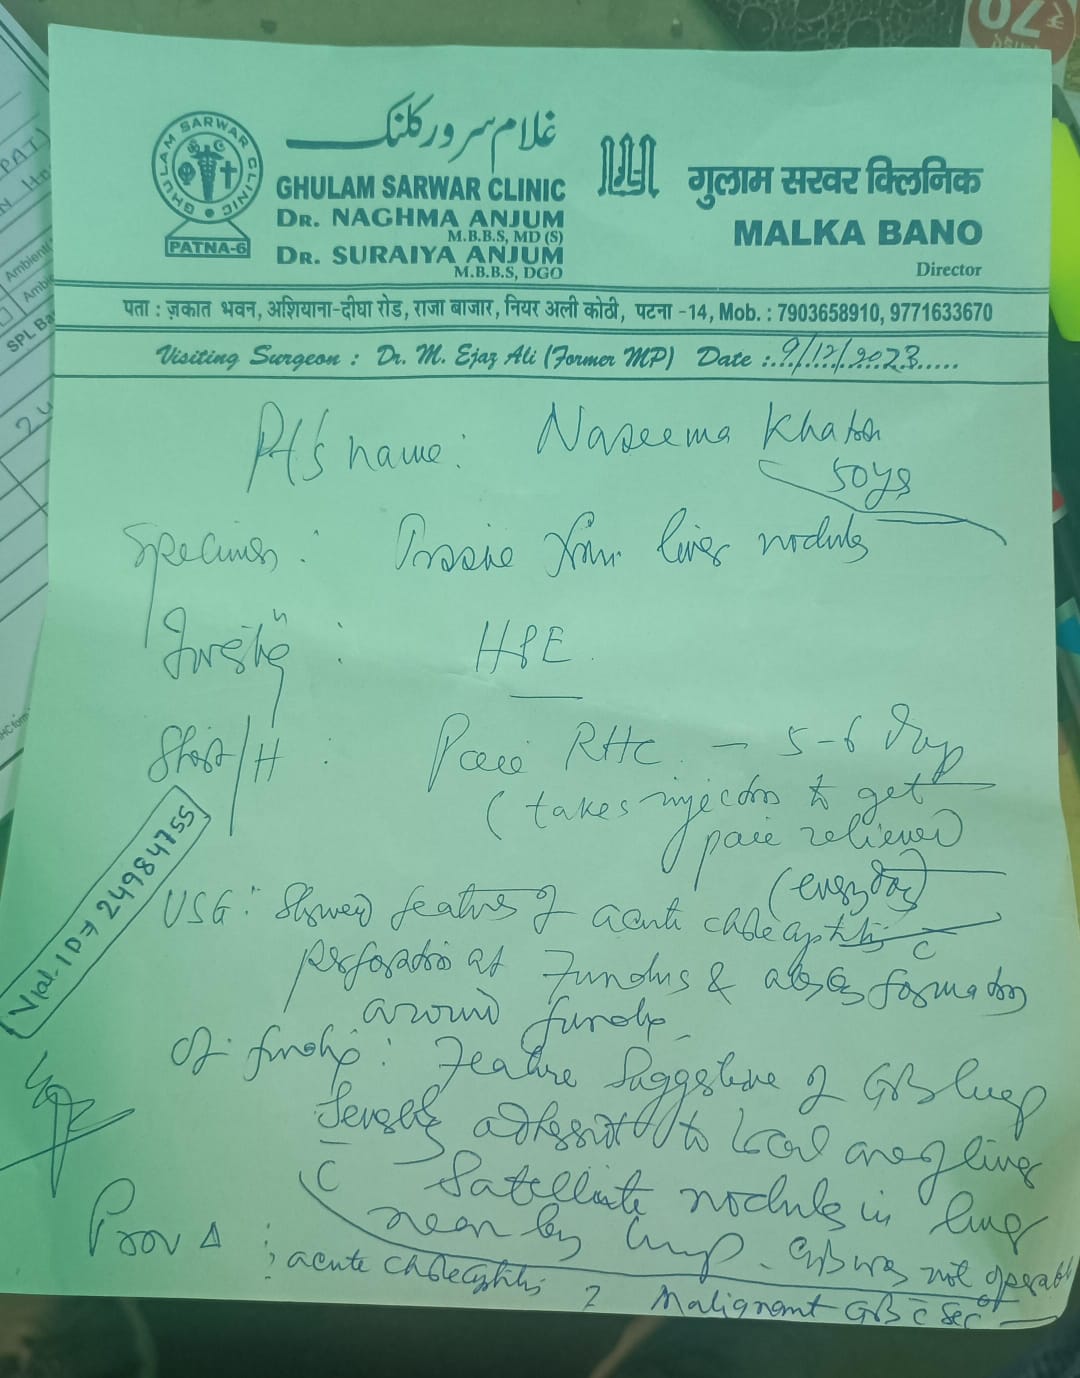 غلام سرور کلنک
GHULAM SARWAR CLINIC
PATNA-6
GHULAM SARWAR CLINIC
DR. NAGHMA ANJUM
M.B.B.S, MD (S)
DR. SURAIYA ANJUM
M.B.B.S, DGO
गुलाम सरवर क्लिनिक
MALKA BANO
Director
पता : ज़कात भवन, अशियाना-दीघा रोड, राजा बाजार, नियर अली कोठी, पटना -14, Mob. : 7903658910, 9771633670
Visiting Surgeon : Dr. M. Ejaz Ali (Former MP) Date : 9/12/2023
Pt's name : Naseema Khatoon
50ys
Specimen : Tissue from liver nodule
HPE
Short/H : Pain RHC - 5-6 days
(takes injection to get
pain relieved
(everyday)
Vial-ID → 24984755
USG : Showed features of acute cholecystitis c
perforation at Fundus & abscess formation
around fundus
Of finding : Feature Suggestive of GB lump
adherent to local area of liver
c Satellite nodule in liver
near by lump. GB was not operable
Prov Δ : acute cholecystitis ? Malignant GB c sec